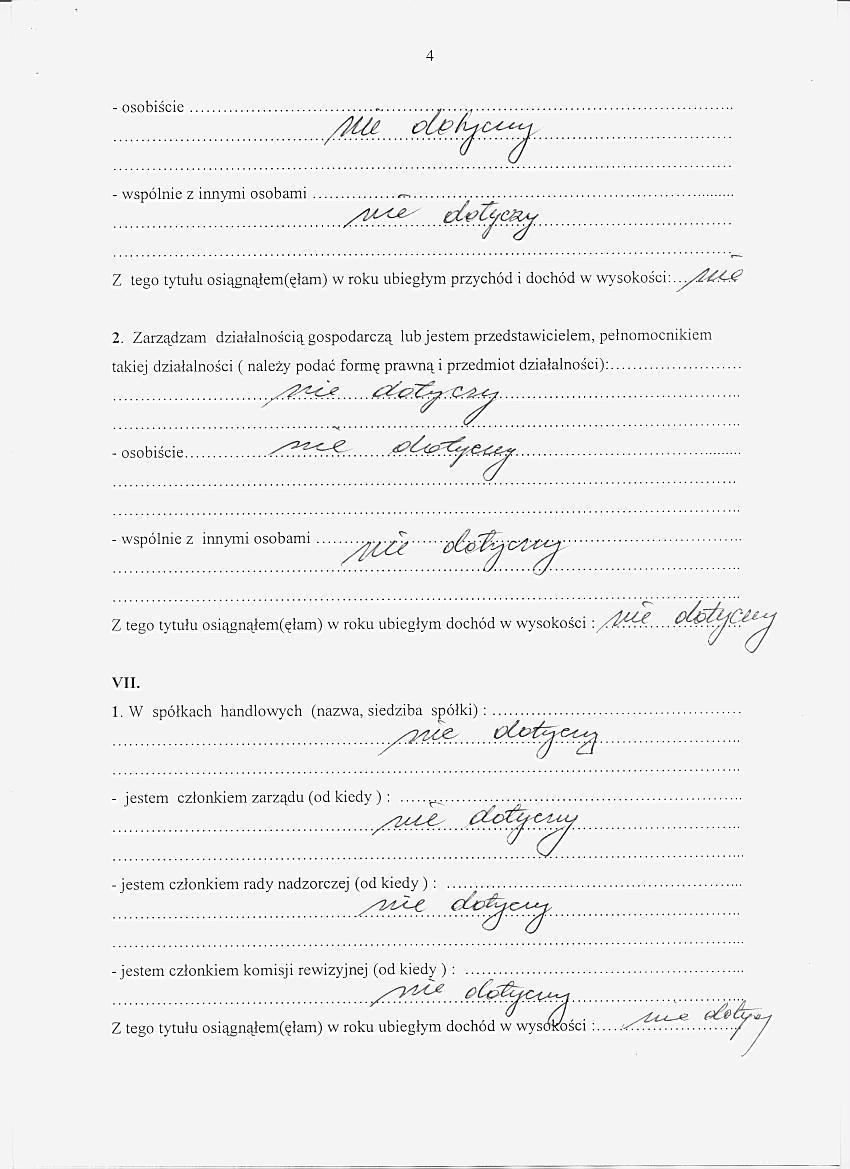 4
- osobiście ........................................
nie dotyczy
- wspólnie z innymi osobami ........................................
nie dotyczy
Z tego tytułu osiągnąłem(ęłam) w roku ubiegłym przychód i dochód w wysokości:... nie
2. Zarządzam działalnością gospodarczą lub jestem przedstawicielem, pełnomocnikiem
takiej działalności ( należy podać formę prawną i przedmiot działalności):........................
nie dotyczy
- osobiście........ nie dotyczy
- wspólnie z innymi osobami ........................................
nie dotyczy
Z tego tytułu osiągnąłem(ęłam) w roku ubiegłym dochód w wysokości : nie dotyczy
VII.
1. W spółkach handlowych (nazwa, siedziba spółki) : ........................................
nie dotyczy
- jestem członkiem zarządu (od kiedy ) : ........................................
nie dotyczy
- jestem członkiem rady nadzorczej (od kiedy ) : ........................................
nie dotyczy
- jestem członkiem komisji rewizyjnej (od kiedy ) : ........................................
nie dotyczy
Z tego tytułu osiągnąłem(ęłam) w roku ubiegłym dochód w wysokości :..... nie dotyczy